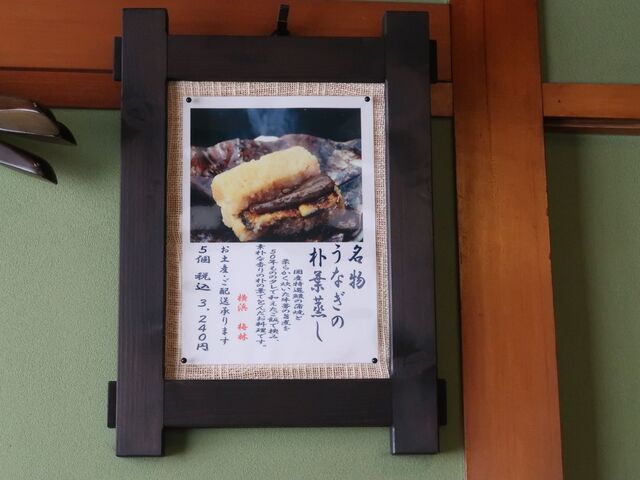 名物
うなぎの
朴葉蒸し
国産特選鰻の蒲焼と
柔らかく炊いた牛蒡の旨煮を
50年もののタレで和えたご飯で挟み、
素朴な香りの朴の葉で包んだお料理です。
横浜 梅林
お土産・ご配送承ります
5個 税込 3,240円